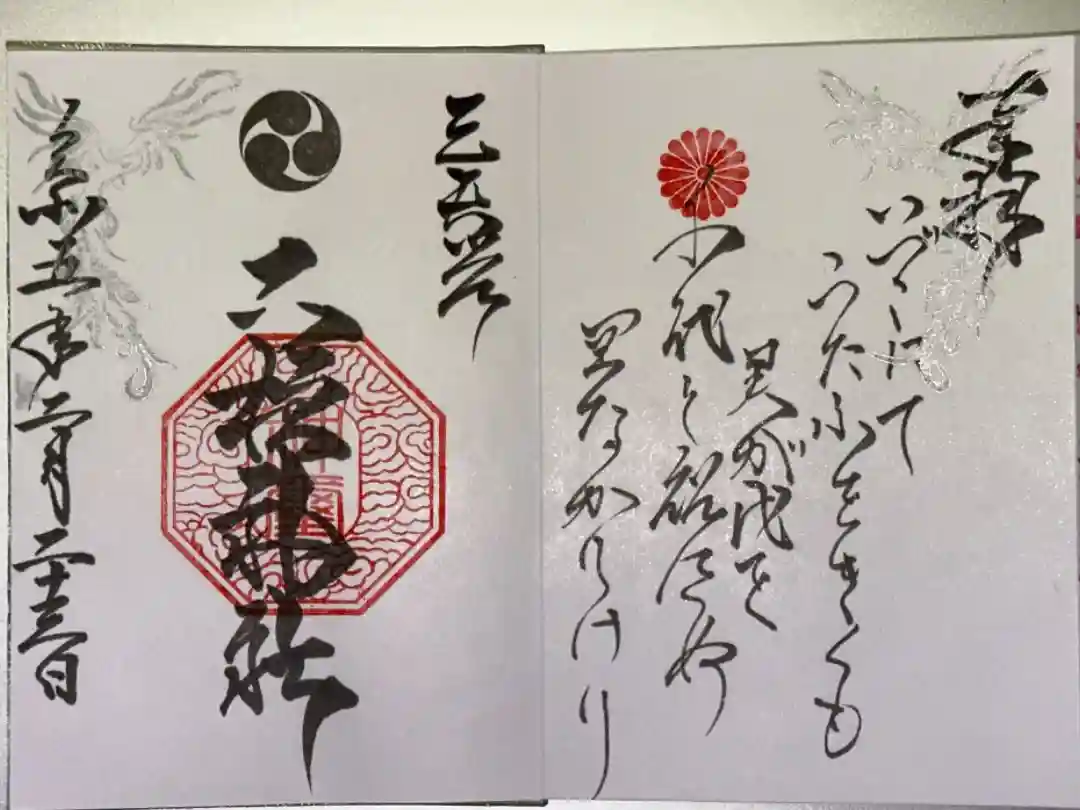 奉拝
いづくにて
うたふをきくも
君が代を
代と祝はぬ
里なかりけり
六 神社
令和五年二月二十三日